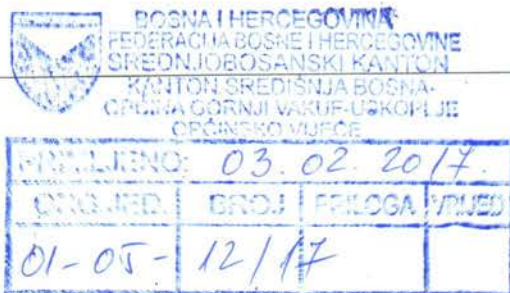 BOSNA I HERCEGOVINA
FEDERACIJA BOSNE I HERCEGOVINE
SREDNJOBOSANSKI KANTON
KANTON SREDIŠNJA BOSNA
OPĆINA GORNJI VAKUF-USKOPLJE
OPĆINSKO VIJEĆE
PRIMLJENO: 03.02.2017.
ORG.JED. BROJ PRILOGA VRIJED
01-05- 12/17